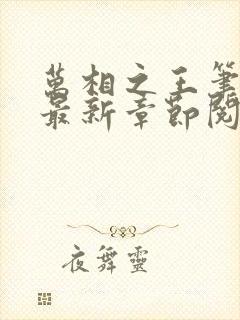 萬相之王筆
最新章節閱
夜舞靈